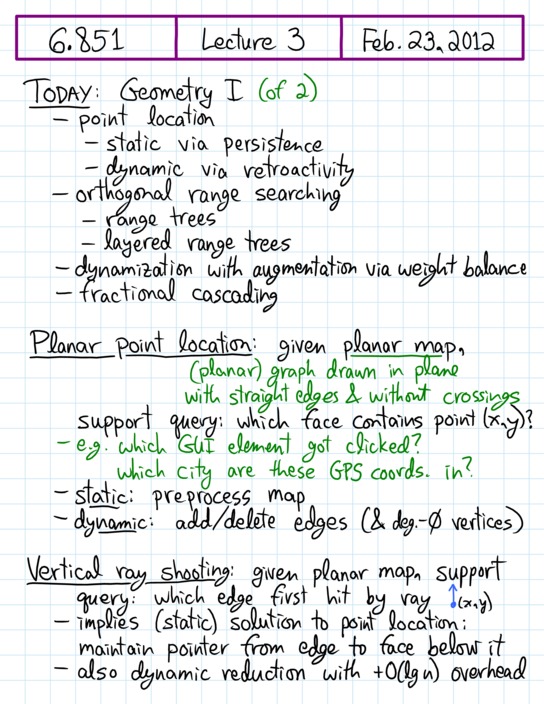 6.851 Lecture 3 Feb. 23, 2012
TODAY: Geometry I (of 2)
- point location
- static via persistence
- dynamic via retroactivity
- orthogonal range searching
- range trees
- layered range trees
- dynamization with augmentation via weight balance
- fractional cascading
Planar point location: given planar map,
(planar) graph drawn in plane
with straight edges & without crossings
support query: which face contains point (x,y)?
- e.g. which GUI element got clicked?
which city are these GPS coords. in?
- static: preprocess map
- dynamic: add/delete edges (& deg.-0 vertices)
Vertical ray shooting: given planar map, support
query: which edge first hit by ray (x,y)
- implies (static) solution to point location:
maintain pointer from edge to face below it
- also dynamic reduction with +O(lg n) overhead